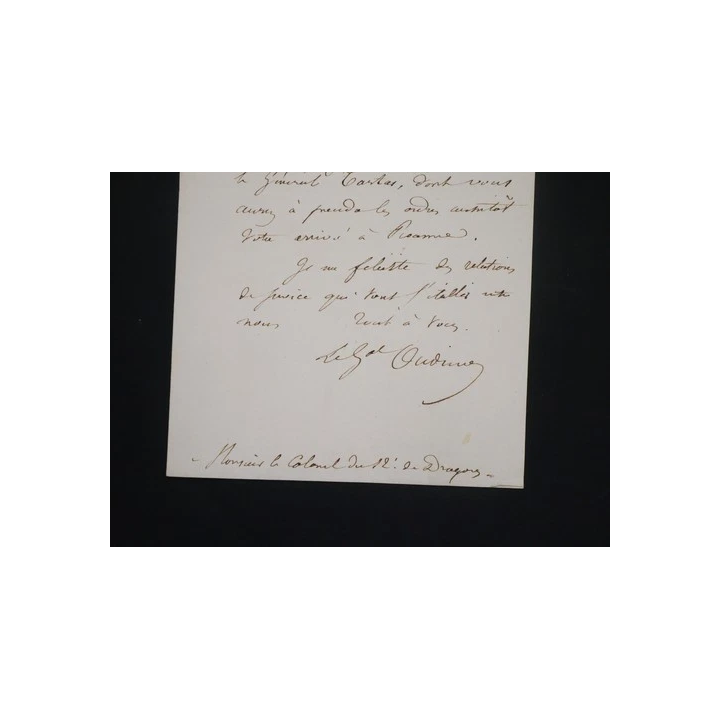 le Général Tartas, dont vous
aurez à prendre les ordres aussitôt
votre arrivé à Roanne.
Je me félicite des relations
de service qui vont s'établir entre
nous Tout à vous.
Le Gal Oudinot
- Monsieur le Colonel du 12e. de Dragons -